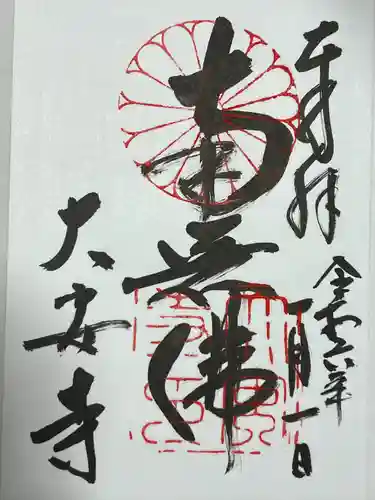 奉拝
令和六年
一月一日
南無佛
大安寺